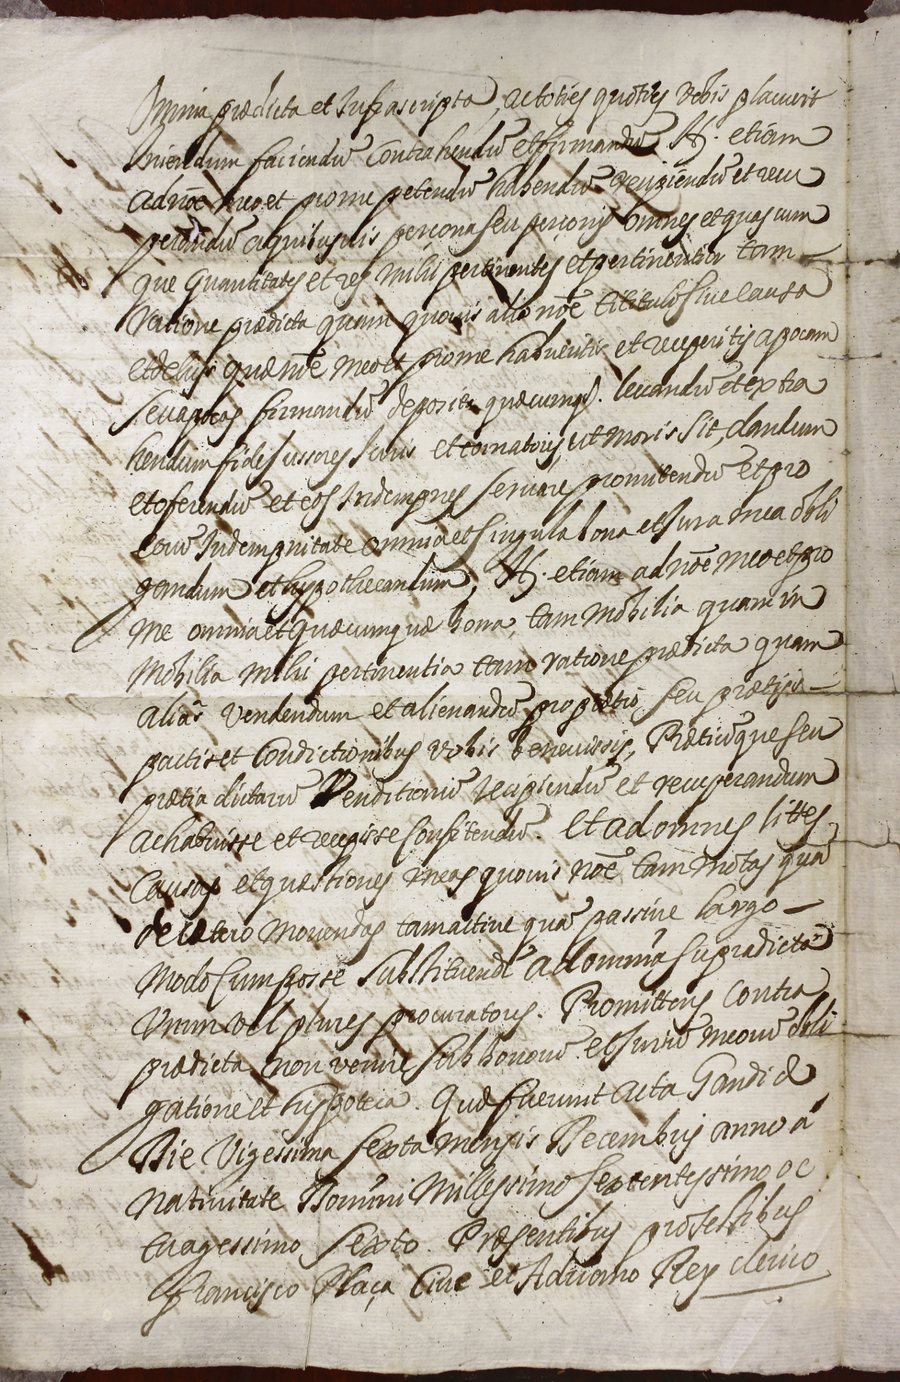 Omnia prædicta et Infrascripta, ac toties quoties vobis placuerit
Iniendum faciendũ Contrahendũ et firmandũ. It. etiam
ad nõe meo et pro me petendũ habendũ recipiendũ et recu
perandũ a quibusvis persona seu personis omnes et quascum
que quantitates et res mihi pertinentes et pertinentia tam
ratione prædicta quam quovis alio nõe titulo sive causa
et de his quæ nõe meo et pro me habueritis et receperitis apocam
seu apocas firmandũ deposita quæcumq. levandũ et extra
hendum fideiussores Iuris et tornatoris ut moris sit, dandum
et oferendũ et eos Indempnes servare promitendũ et pro
eorũ Indempnitate omnia et singula bona et Iura mea obli
gandum et hypothecandum, It. etiam ad nõe meo et pro
me omnia et quæcumquæ bona, tam mobilia quam in
mobilia mihi pertinentia tam ratione prædicta quam
alias vendendum et alienandũ pro prætio seu prætijs
pactis et Condictionibus vobis benevissis, Prætiũque seu
prætia dictarũ Venditionũ recipiendũ et recuperandum
ac habuisse et recepisse Confitendũ. Et ad omnes littes
Causas et quæstiones meas quovis nõe tam motas quã
de cætero movendas tam active quã passive largo
modo Cum posse substituendi ad omnia supradicta
Unum vel plures procuratores. Promittens Contra
prædicta non venire sub bonorũ et Iuriũ meorũ obli
gatione et hyppoteca. Quæ fuerunt acta Gandi æ
Die Vigessima sexta mensis Decembris anno à
nativitate Domini Millessimo sexcentessimo oc
tuagessimo sexto. Præsentibus pro testibus
Francisco Plaça Cive et Adriano Rey clerico